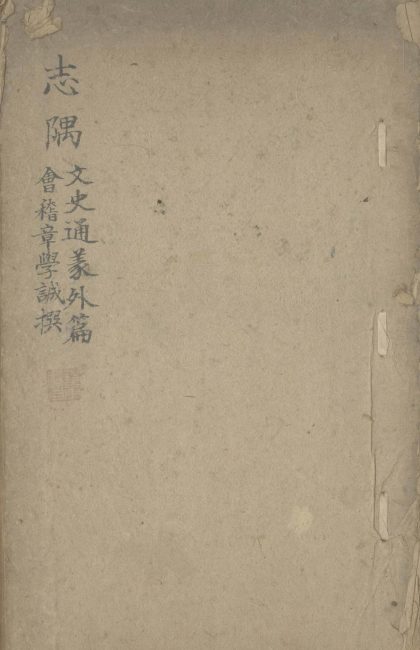 志隅
文史通義外篇
會稽章學誠撰